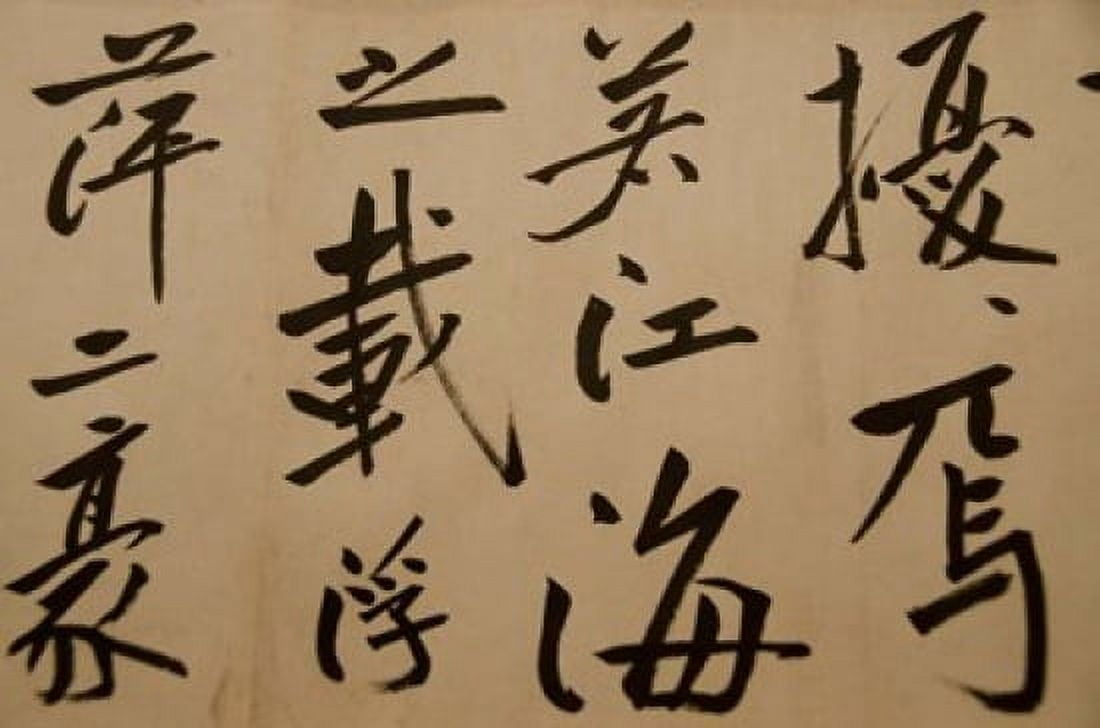 擾、焉
江海
之載浮
萍二豪